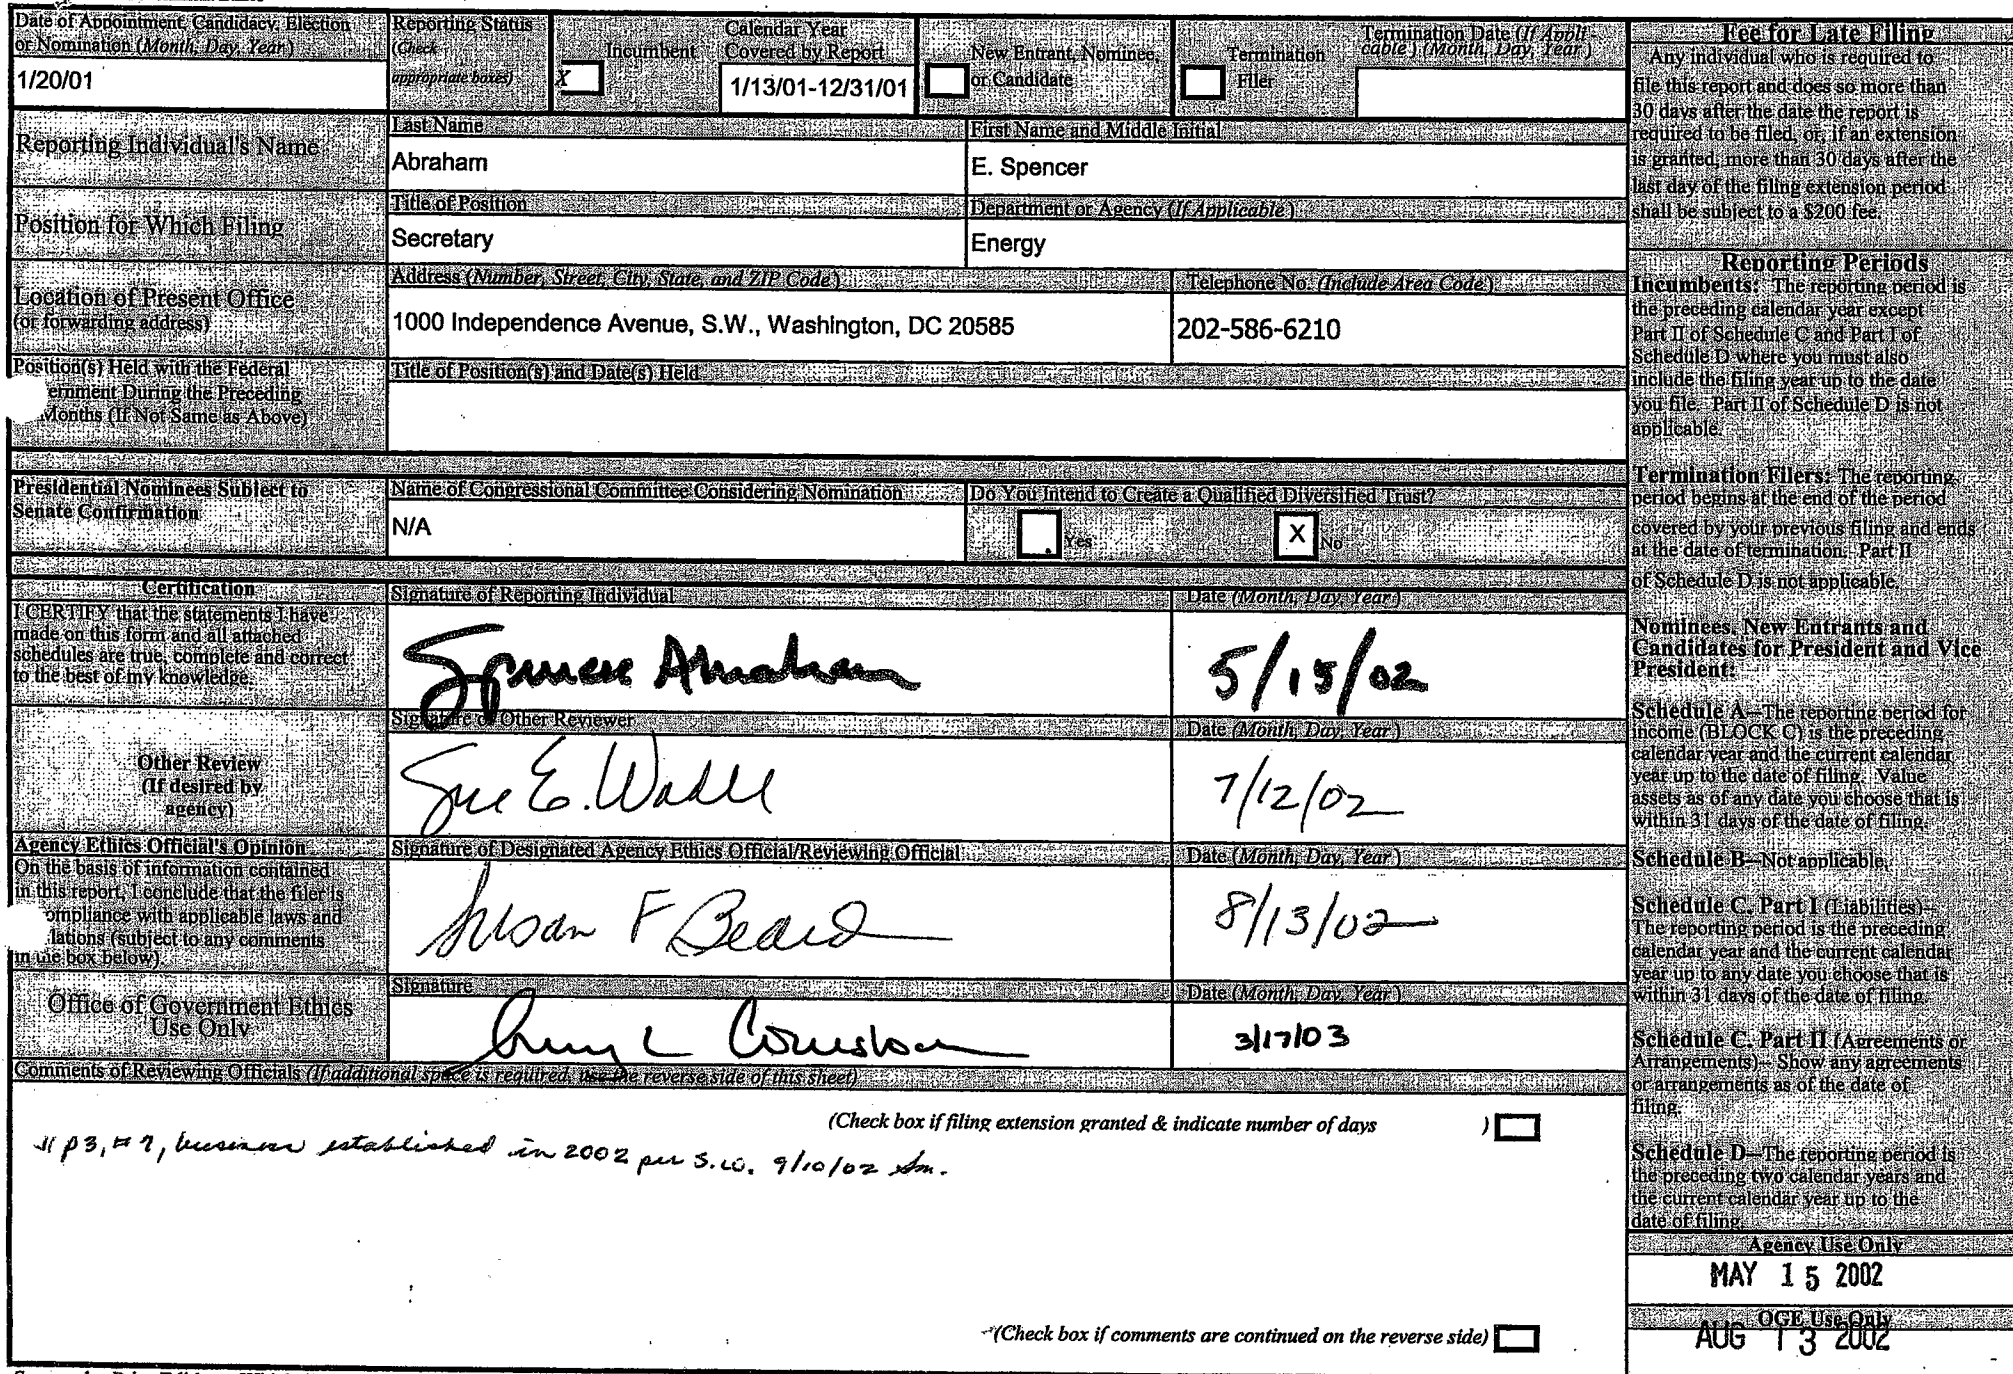 Date of Appointment, Candidacy, Election
or Nomination (Month, Day, Year)
1/20/01
Reporting Status
(Check
appropriate boxes)
X
Incumbent
Calendar Year
Covered by Report
1/13/01-12/31/01
New Entrant, Nominee,
or Candidate
Termination
Filer
Termination Date (If Appli-
cable) (Month, Day, Year)
Reporting Individual's Name
Last Name
Abraham
First Name and Middle Initial
E. Spencer
Position for Which Filing
Title of Position
Secretary
Department or Agency (If Applicable)
Energy
Location of Present Office
(or forwarding address)
Address (Number, Street, City, State, and ZIP Code)
1000 Independence Avenue, S.W., Washington, DC 20585
Telephone No. (Include Area Code)
202-586-6210
Position(s) Held with the Federal
ernment During the Preceding
Months (If Not Same as Above)
Title of Position(s) and Date(s) Held
Presidential Nominees Subject to
Senate Confirmation
Name of Congressional Committee Considering Nomination
N/A
Do You Intend to Create a Qualified Diversified Trust?
Yes
X No
Certification
I CERTIFY that the statements I have
made on this form and all attached
schedules are true, complete and correct
to the best of my knowledge.
Signature of Reporting Individual
Spencer Abraham
Date (Month, Day, Year)
5/15/02
Other Review
(If desired by
agency)
Signature of Other Reviewer
Sue E. Wadel
Date (Month, Day, Year)
7/12/02
Agency Ethics Official's Opinion
On the basis of information contained
in this report, I conclude that the filer is
ompliance with applicable laws and
lations (subject to any comments
in the box below)
Signature of Designated Agency Ethics Official/Reviewing Official
Susan F Beard
Date (Month, Day, Year)
8/13/02
Office of Government Ethics
Use Only
Signature
Date (Month, Day, Year)
3/17/03
Comments of Reviewing Officials (If additional space is required, use the reverse side of this sheet)
(Check box if filing extension granted & indicate number of days )
p3, #7, business established in 2002 per S.W. 9/10/02
(Check box if comments are continued on the reverse side)
Fee for Late Filing
Any individual who is required to
file this report and does so more than
30 days after the date the report is
required to be filed, or, if an extension
is granted, more than 30 days after the
last day of the filing extension period
shall be subject to a $200 fee.
Reporting Periods
Incumbents: The reporting period is
the preceding calendar year except
Part II of Schedule C and Part I of
Schedule D where you must also
include the filing year up to the date
you file. Part II of Schedule D is not
applicable.
Termination Filers: The reporting
period begins at the end of the period
covered by your previous filing and ends
at the date of termination. Part II
of Schedule D is not applicable.
Nominees, New Entrants and
Candidates for President and Vice
President:
Schedule A--The reporting period for
income (BLOCK C) is the preceding
calendar year and the current calendar
year up to the date of filing. Value
assets as of any date you choose that is
within 31 days of the date of filing.
Schedule B--Not applicable.
Schedule C, Part I (Liabilities)--
The reporting period is the preceding
calendar year and the current calendar
year up to any date you choose that is
within 31 days of the date of filing.
Schedule C, Part II (Agreements or
Arrangements)--Show any agreements
or arrangements as of the date of
filing.
Schedule D--The reporting period is
the preceding two calendar years and
the current calendar year up to the
date of filing.
Agency Use Only
MAY 15 2002
OGE Use Only
AUG 13 2002